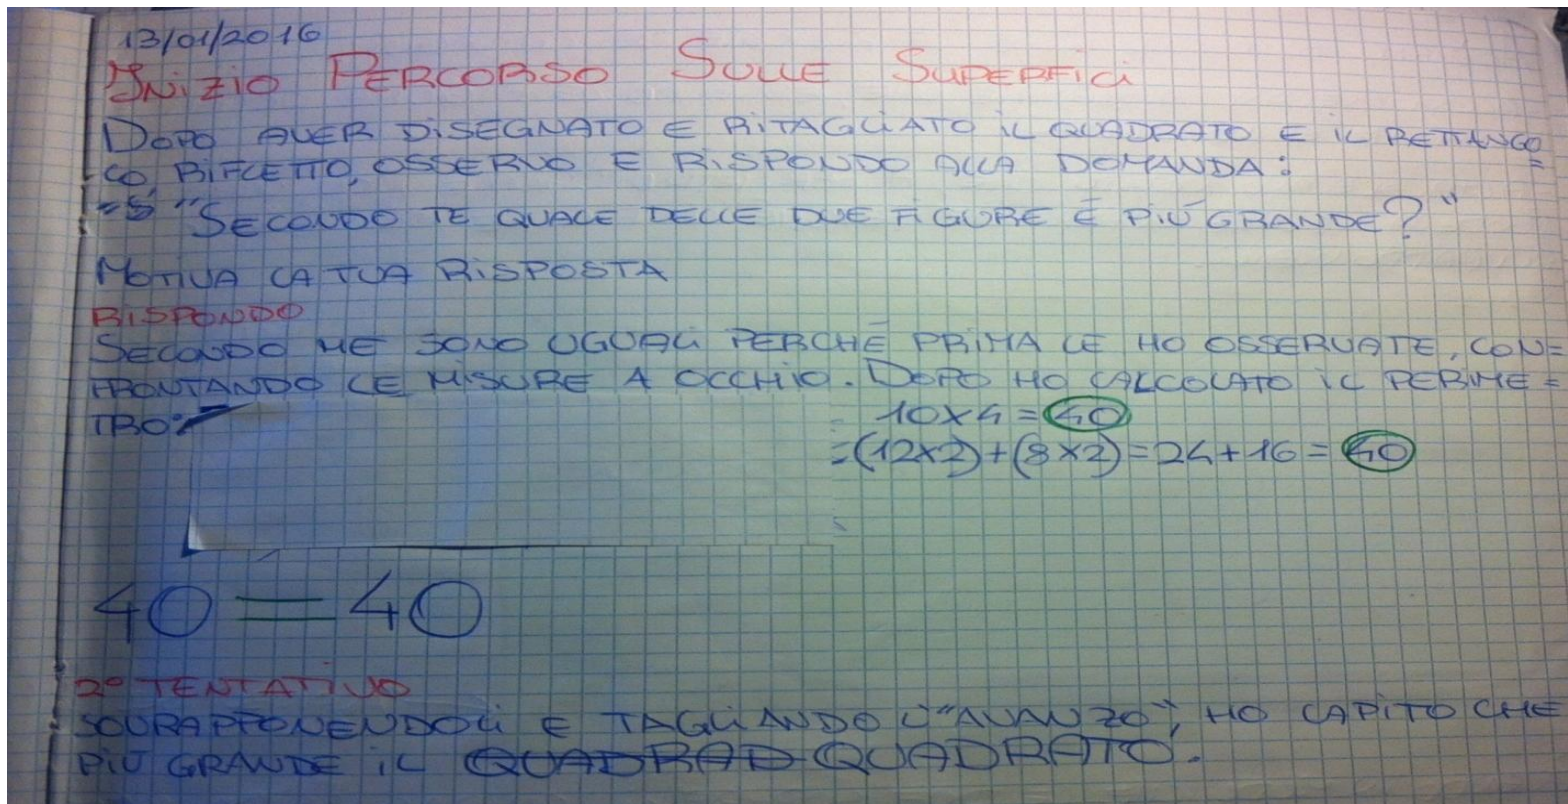 13/01/2016
INIZIO PERCORSO SULLE SUPERFICI
DOPO AVER DISEGNATO E RITAGLIATO IL QUADRATO E IL RETTANGO=
LO, RIFLETTO, OSSERVO E RISPONDO ALLA DOMANDA:
"SECONDO TE QUALE DELLE DUE FIGURE É PIÚ GRANDE?"
MOTIVA LA TUA RISPOSTA
RISPONDO
SECONDO ME SONO UGUALI PERCHÉ PRIMA LE HO OSSERVATE, CON=
FRONTANDO LE MISURE A OCCHIO. DOPO HO CALCOLATO IL PERIME=
TRO:
10x4=40
=(12x2)+(8x2)=24+16=40
40=40
2° TENTATIVO
SOVRAPPONENDOLI E TAGLIANDO L'"AVANZO", HO CAPITO CHE
PIÚ GRANDE IL QUADRAD QUADRATO.